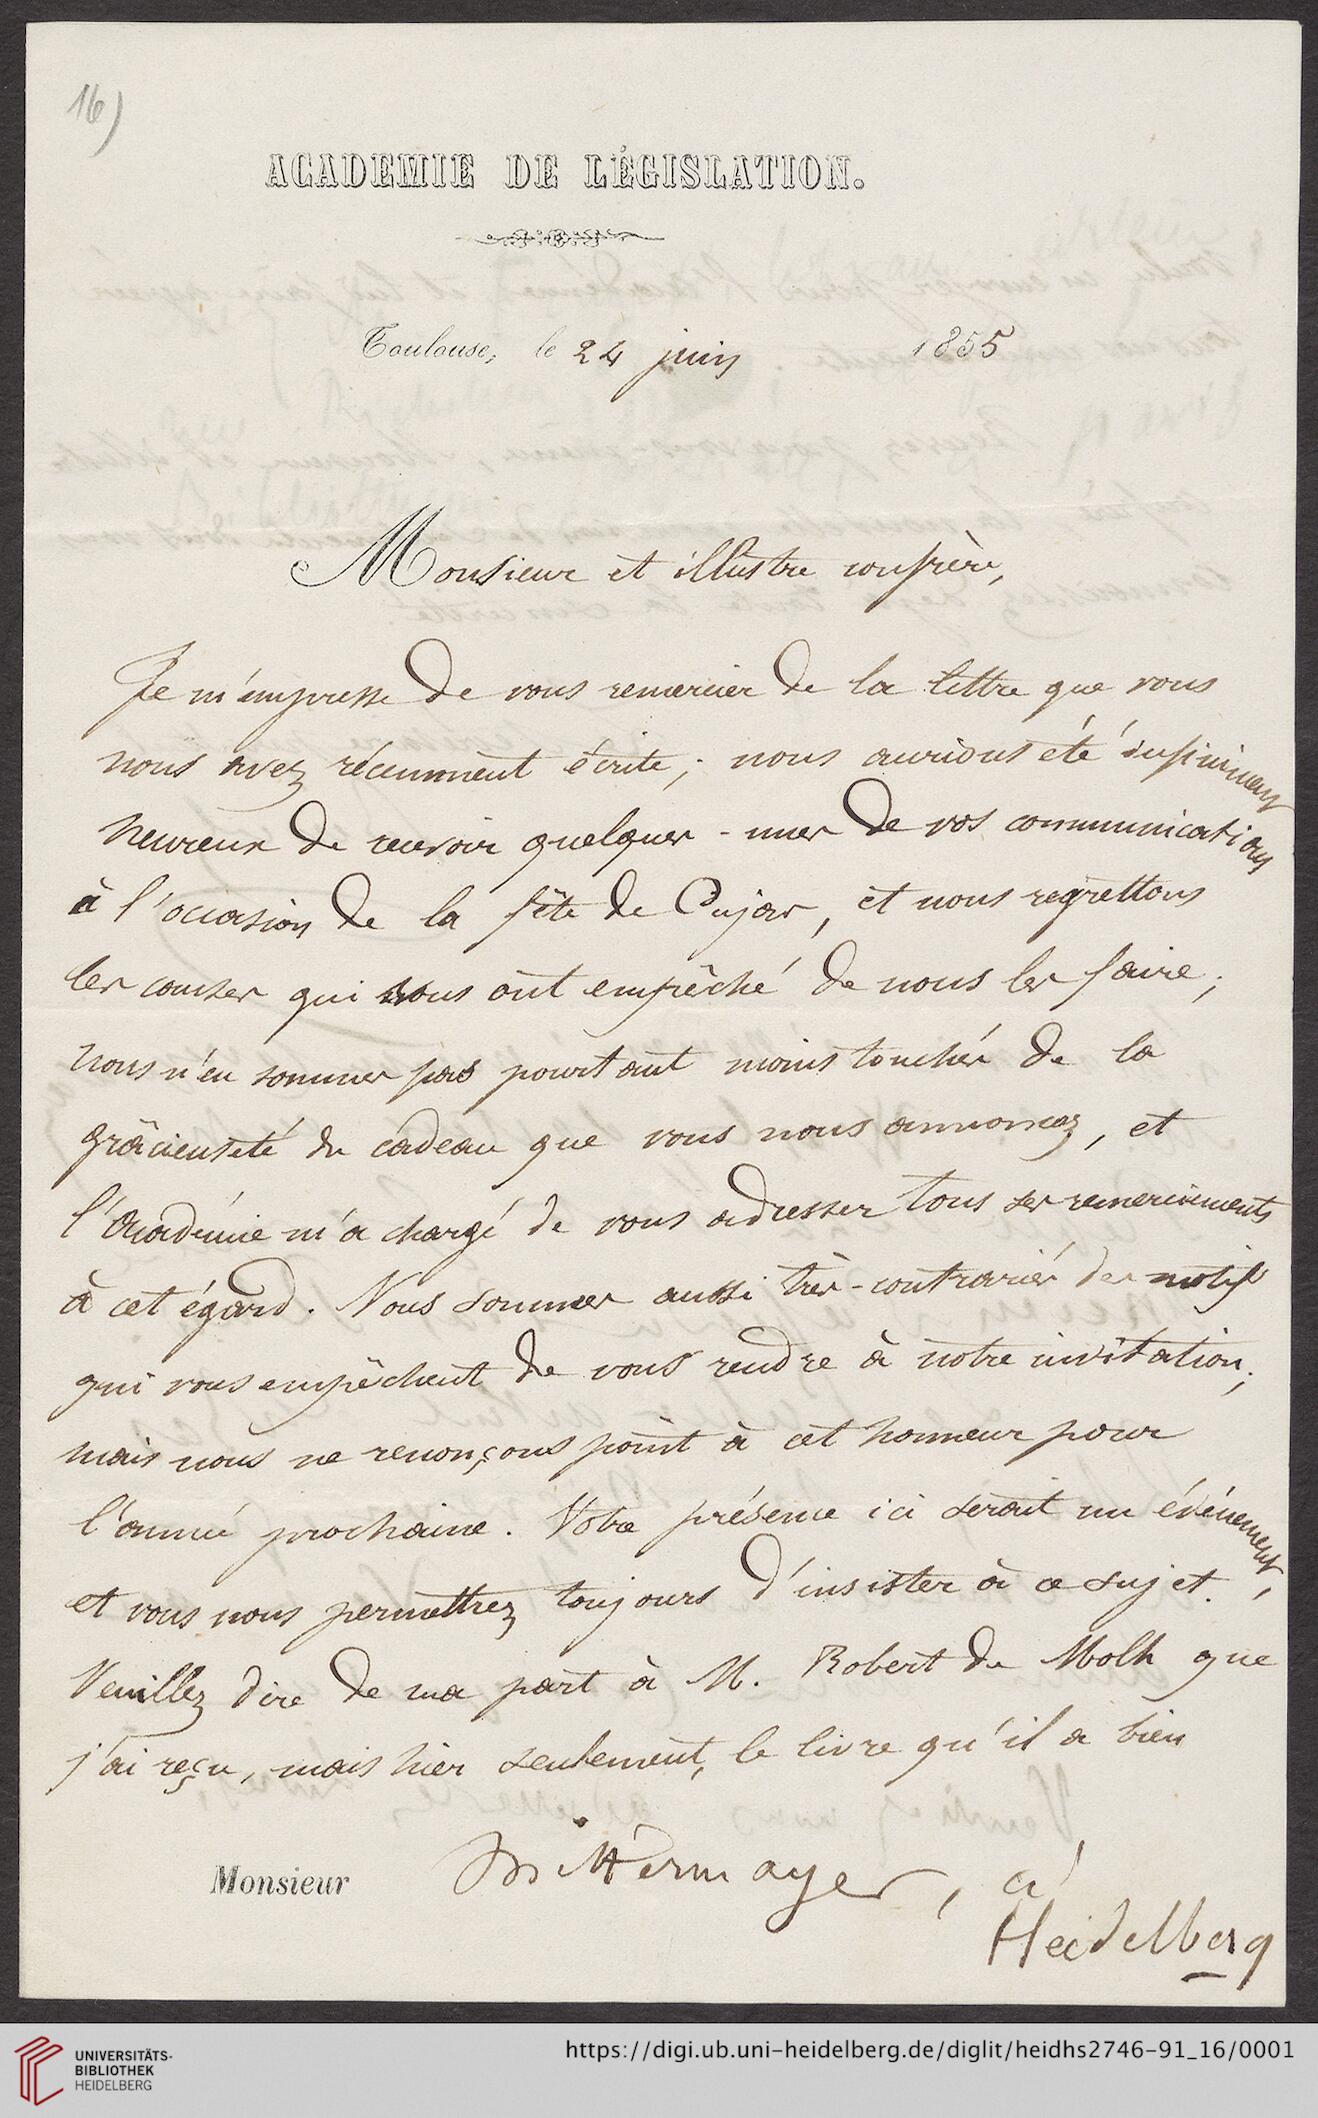 16)
ACADEMIE DE LÉGISLATION.
Toulouse, le 24 juin 1855
Monsieur et illustre confrère,
Je m'empresse de vous remercier de la lettre que vous
nous avez récemment écrite; nous aurions été infiniment
heureux de recevoir quelques-unes de vos communications
à l'occasion de la fête de Cujas, et nous regrettons
les causes qui vous ont empêché de nous les faire;
nous n'en sommes pas pourtant moins touchés de la
grâcieuseté du cadeau que vous nous annoncez, et
l'Académie m'a chargé de vous adresser tous ses remerciements
à cet égard. Nous sommes aussi très-contrariés des motifs
qui vous empêchent de vous rendre à notre invitation;
mais nous ne renonçons point à cet honneur pour
l'année prochaine. Votre présence ici serait un événement,
et vous nous permettrez toujours d'insister à ce sujet.
Veuillez dire de ma part à M. Robert de Molh que
j'ai reçu, mais hier seulement, le livre qu'il a bien
Monsieur Mittermayer, à
Heidelberg
UNIVERSITÄTS-
BIBLIOTHEK
HEIDELBERG
https://digi.ub.uni-heidelberg.de/diglit/heidhs2746-91_16/0001